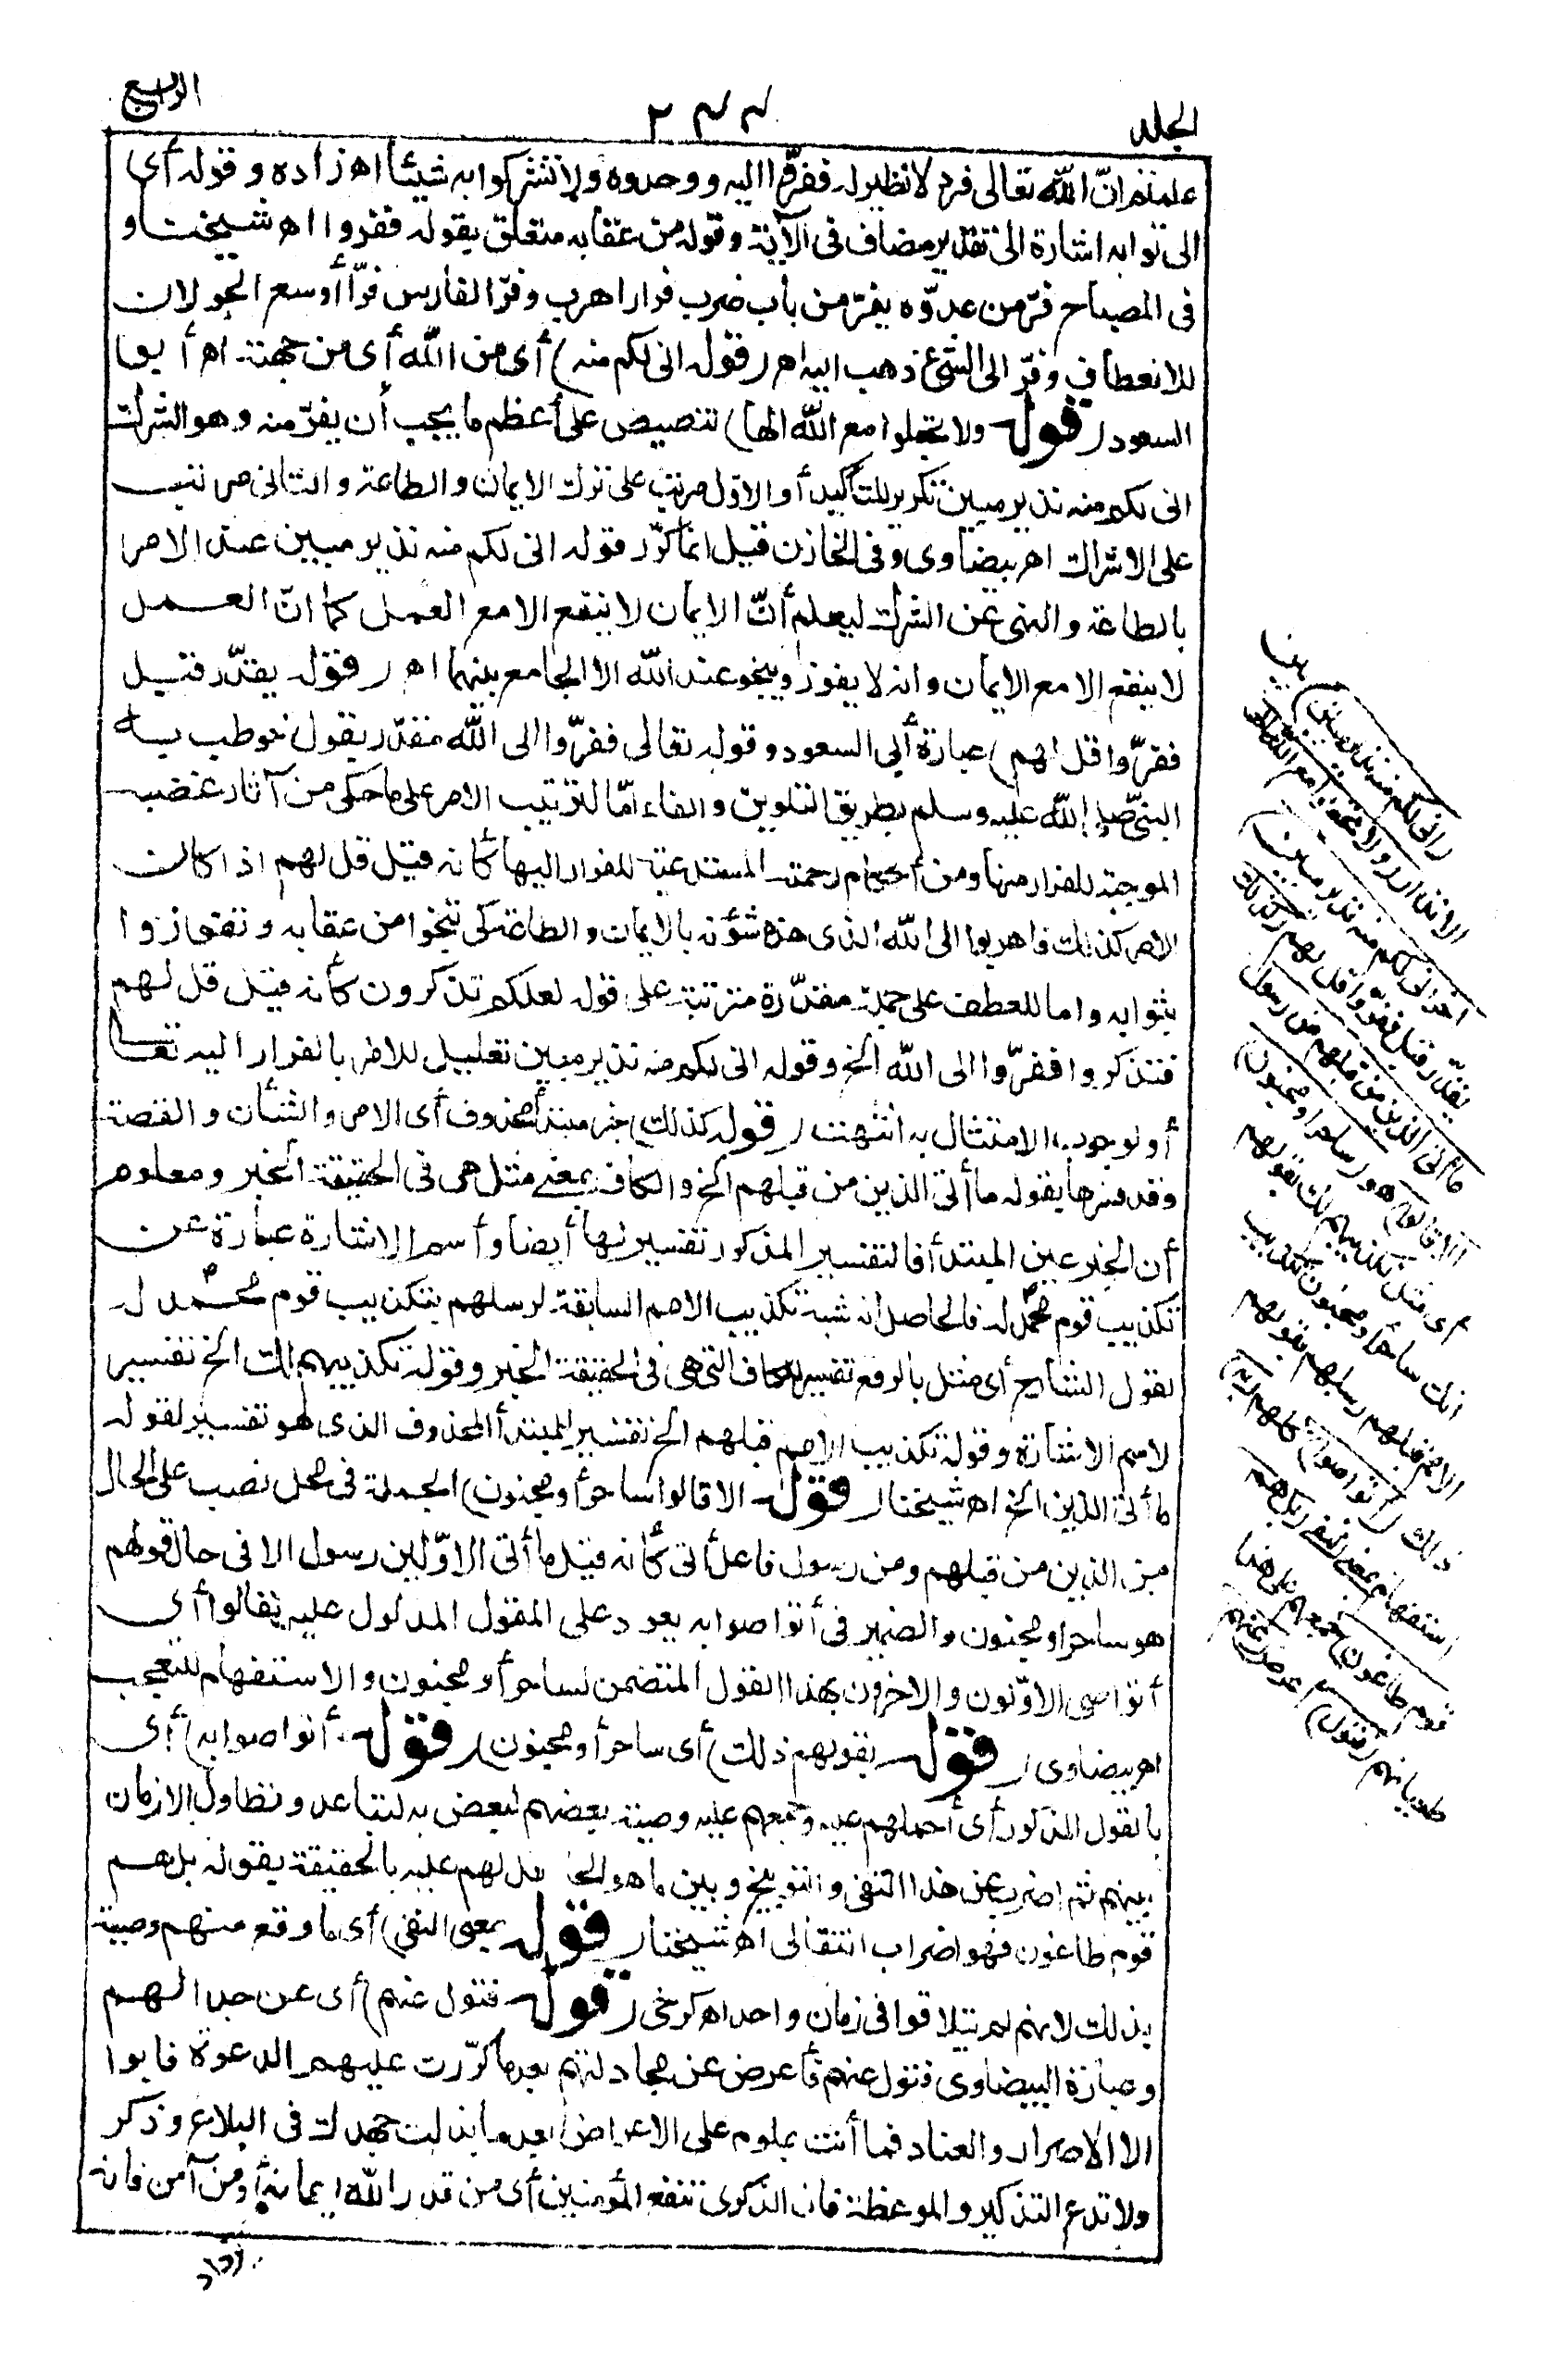 الجلد ٢٣٣ الرابع
علمتم انّ الله تعالى فرد لا نظير له ففرّوا اليه ووحدوه ولا تشركوا به شيئا اه زاده وقوله أى
الى ثوابه اشارة الى تقدير مضاف فى الآية وقوله من عقابه متعلق بقوله ففروا اه شيخنا و
فى المصباح فرّ من عدوّه يفرّ من باب ضرب فرارا هرب وفرّ الفارس فرّا أوسع الجولان
للانعطاف وفرّ الى الشئ ذهب اليه اه (قوله انى لكم منه) أى من الله أى من جهته اه أبو
السعود (قوله ولا تجعلوا مع الله الها) تنصيص على أعظم ما يجب أن يفرّ منه وهو الشرك
انى لكم منه نذير مبين تكرير للتأكيد أو الاوّل مرتب على ترك الايمان والطاعة والثانى مرتب
على الاشراك اه بيضاوى وفى الخازن قيل انما كرّر قوله انى لكم منه نذير مبين عند الامر
بالطاعة والنهى عن الشرك ليعلم أنّ الايمان لا ينفع الا مع العمل كما انّ العمل
لا ينفع الا مع الايمان وانه لا يفوز وينجو عند الله الا الجامع بينهما اه (قوله يقدّر قبل
ففرّوا قل لهم) عبارة أبى السعود وقوله تعالى ففرّوا الى الله مقدّر بقول خوطب به
النبىّ صلى الله عليه وسلم بطريق التلوين والفاء امّا لترتيب الامر على ما حكى من آثار غضبه
الموجبة للفرار منها ومن أحكام رحمته المستدعية للفرار اليها كأنه قيل قل لهم اذا كان
الامر كذلك فاهربوا الى الله الذى هذه شؤنه بالايمان والطاعة كى تنجوا من عقابه وتفوزوا
بثوابه واما للعطف على جملة مقدّرة مترتبة على قوله لعلكم تذكرون كأنه قيل قل لهم
فتذكروا ففرّوا الى الله الخ وقوله انى لكم منه نذير مبين تعليل للامر بالفرار اليه تعالى
أو لوجوب الامتثال به انتهت (قوله كذلك) خبر مبتدأ محذوف أى الامر والشأن والقصة
وقد فسرها بقوله ما أتى الذين من قبلهم الخ والكاف بمعنى مثل هى فى الحقيقة الخبر ومعلوم
أن الخبر عين المبتدأ فالتفسير المذكور تفسير لها أيضا وأسم الاشارة عبارة عن
تكذيب قوم محمّد له فالحاصل انه شبه تكذيب الامم السابقة لرسلهم بتكذيب قوم محمّد له
لقول الشارح أى مثل بالرفع تفسير للكاف التى هى فى الحقيقة الخبر وقوله تكذيبهم لك الخ تفسير
لاسم الاشارة وقوله تكذيب الامم قبلهم الخ تفسير للمبتدأ المحذوف الذى هو تفسير لقوله
ما أتى الذين الخ اه شيخنا (قوله الا قالوا ساحر أو مجنون) الجملة فى محل نصب على الحال
من الذين من قبلهم ومن رسول فاعل أتى كأنه قيل ما أتى الاوّلين رسول الا فى حال قولهم
هو ساحر أو مجنون والضمير فى أتواصوا به يعود على المقول المدلول عليه بقالوا أى
أتواصى الاوّلون والاخرون بهذا القول المتضمن لساحر أو مجنون والاستفهام للتعجب
اه بيضاوى (قوله بقولهم ذلك) أى ساحر أو مجنون (قوله أتواصوا به) أى
بالقول المذكور أى أحملهم عليه وجمعهم عليه وصية بعضهم لبعض به لتباعد وتطاول الازمان
بينهم ثم اضرب عن هذا النفى والتوبيخ وبين ما هو الحامل لهم عليه بالحقيقة بقوله بل هم
قوم طاغون فهو اضراب انتقالى اه شيخنا (قوله بمعنى النفى) أى ما وقع منهم وصية
بذلك لانهم لم يتلاقوا فى زمان واحد اه كرخى (قوله فتول عنهم) أى عن جدالهم
وعبارة البيضاوى فتول عنهم فأعرض عن مجادلتهم بعد ما كرّرت عليهم الدعوة فابوا
الا الاصرار والعناد فما أنت بملوم على الاعراض بعد ما بذلت جهدك فى البلاغ وذكر
ولا تدع التذكير والموعظة فان الذكرى تنفع المؤمنين أى من قدر الله ايمانه أو من آمن فانه
(انى لكم منه نذير مبين) بين
الانذار (ولا تجعلوا مع الله الها
آخر انى لكم منه نذير مبين)
يقدّر قبل ففرّوا قل لهم (كذلك
ما أتى الذين من قبلهم من رسول
الا قالوا) هو (ساحر أو مجنون)
أى مثل تكذيبهم لك بقولهم
انك ساحر أو مجنون تكذيب
الامم قبلهم رسلهم بقولهم
ذلك (أتواصوا) كلهم (به)
استفهام بمعنى النفى (بل هم
قوم طاغون) جمعهم على هذا
طغيانهم (فتول) أعرض (عنهم